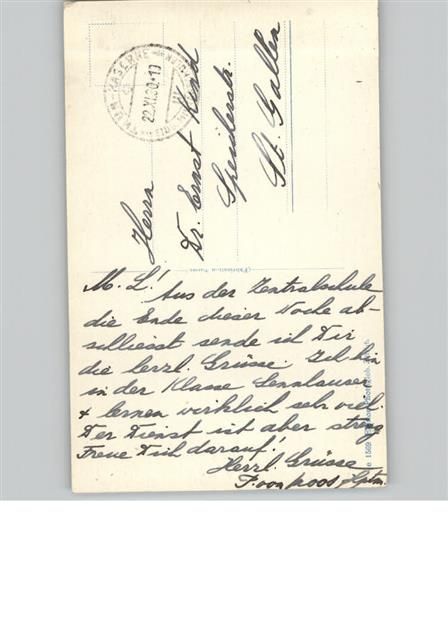 THUN-KASERNE
22.XI.30.-17
Herrn
Dr. Ernst Kind
Speicherstr.
St. Gallen
M. L.!
Aus der Zentralschule
die Ende dieser Woche ab-
schliesst sende ich Dir
die herzl. Grüsse. Ich bin
in der Klasse Sennhauser
+ lernen wirklich sehr viel.
Der Dienst ist aber streng
Freue Dich darauf!
Herzl. Grüsse
F. von Moos Hptm.
1569